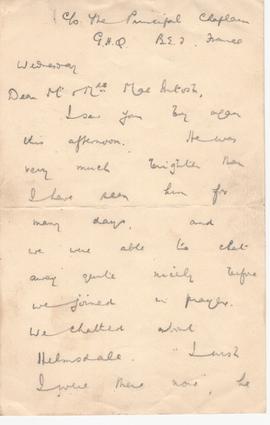 c/o The Principal Chaplain
G.H.Q B.E.F. France
Wednesday
Dear Mr & Mrs MacIntosh,
I saw your boy again
this afternoon. He was
very much brighter than
I have seen him for
many days, and
we were able to chat
away quite nicely before
we joined in prayer.
We chatted about
Helmsdale. "I wish
I were there now", he